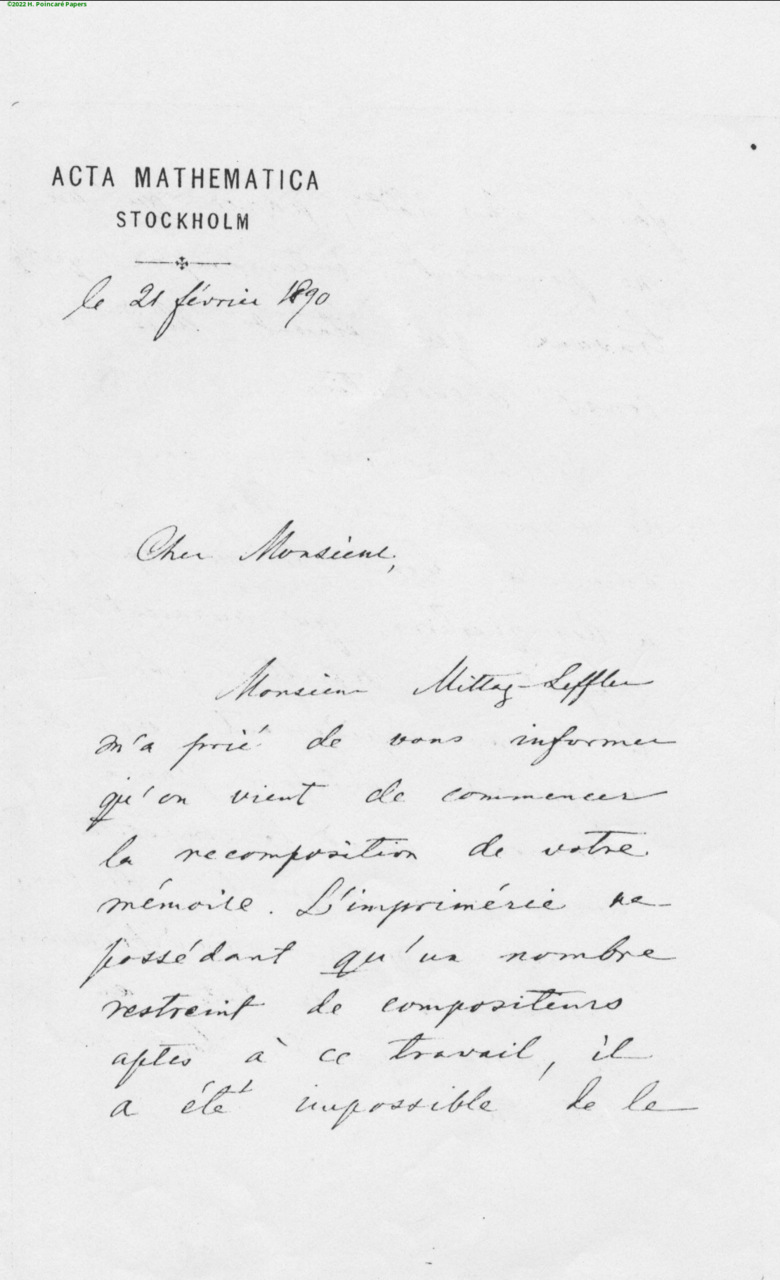 ©2022 H. Poincaré Papers
ACTA MATHEMATICA
STOCKHOLM
le 21 février 1890
Cher Monsieur,
Monsieur Mittag-Leffler
m'a prié de vous informer
qu'on vient de commencer
la recomposition de votre
mémoire. L'imprimérie ne
possédant qu'un nombre
restreint de compositeurs
aptes à ce travail, il
a été impossible de le